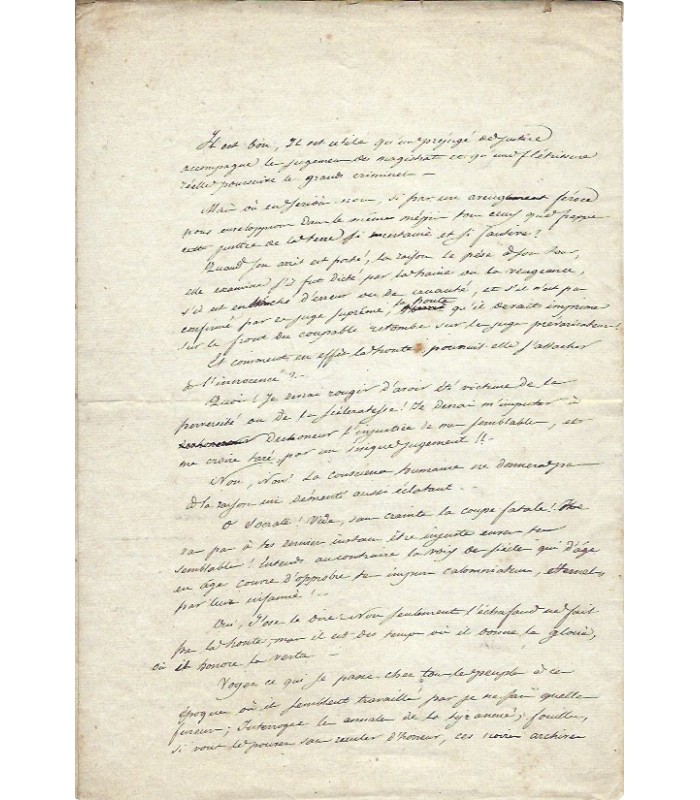 Il est bon, Il est utile qu'un préjugé de justice
accompagne le jugement des magistrat et qu'une flétrissure
réelle poursuive le grands criminel —
Mais où en serions nous, si par un aveuglement féroce
nous enveloppions dans le même mépris tous ceux que frappe
cette justice de la terre si incertaine et si fautive?
Quand son arrêt est porté, la raison le pèse à son tour,
elle examine s'il fut dicté par la haine ou la vengeance,
s'il est entaché d'erreur ou de cruauté, et s'il n'est pas
confirmé par ce juge suprême, la honte qu'il devait imprimer
sur le front du coupable retombe sur le juge prévaricateur!
Et comment en effet la honte pourrait elle s'attacher
à l'innocence? —
Quoi! Je devrai rougir d'avoir été victime de la
perversité ou de la scélératesse! Je devrai m'imputer à
deshoneur l'injustice de mes semblables, et
me croire taré par un inique jugement!! —
Non, Non! La conscience humaine ne donnera pas
à la raison un démenti aussi éclatant. —
O Socrate! Vide, sans crainte la coupe fatale! Ne
va pas à tes dernier instans être injuste envers tes
semblables! Entends au contraire la voix des siècles qui d'âge
en âge couvre d'opprobre tes injustes calomniateurs, éternel
par leur infamie! —
Oui, J'ose le dire: Non seulement l'échafaud ne fait
pas la honte, mais il est des temps où il donne la gloire,
où il honore la vertu —
Voyez ce qui se passe chez tous le peuple à ce
époques où il semblent travaillé par je ne sais quelle
fureur; Interrogez le annales de la tyrannie; fouillez,
si vous le pouvez sans reculer d'horreur, ces noires archives